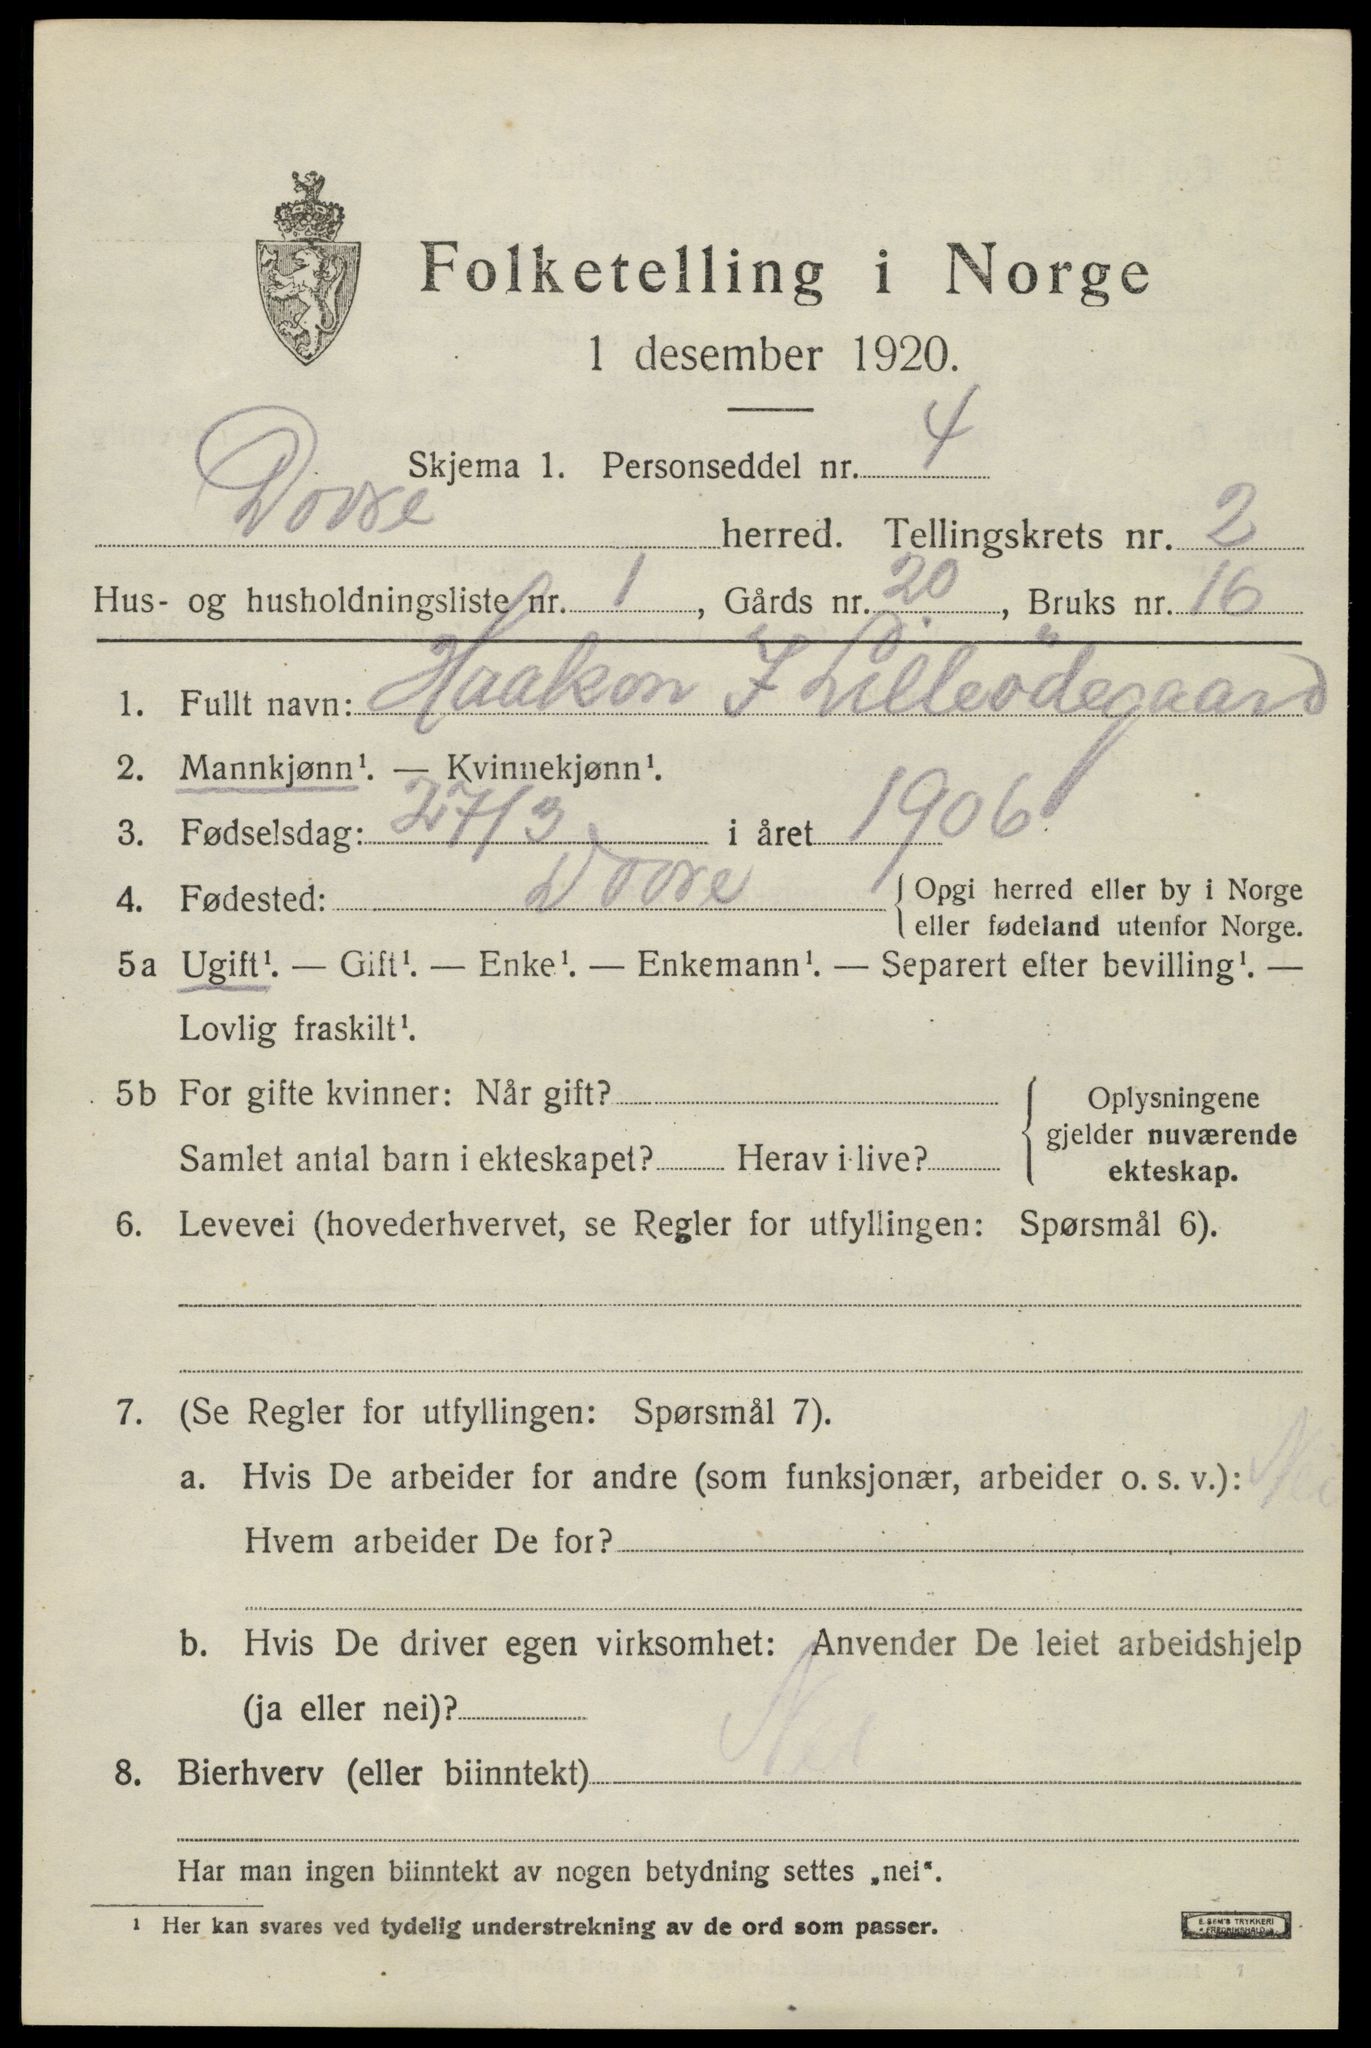 Folketelling i Norge
1 desember 1920.
Skjema 1. Personseddel nr. 4
Dovre herred. Tellingskrets nr. 2
Hus- og husholdningsliste nr. 1, Gårds nr. 20, Bruks nr. 16
1. Fullt navn: Haakon I Lilleödegaard
2. Mannkjønn¹. — Kvinnekjønn¹.
3. Fødselsdag: 27/3 i året 1906
4. Fødested: Dovre { Opgi herred eller by i Norge
eller fødeland utenfor Norge.
5a Ugift¹. — Gift¹. — Enke¹. — Enkemann¹. — Separert efter bevilling¹. —
Lovlig fraskilt¹.
5b For gifte kvinner: Når gift?
Samlet antal barn i ekteskapet? Herav i live?
Oplysningene
gjelder nuværende
ekteskap.
6. Levevei (hovederhvervet, se Regler for utfyllingen: Spørsmål 6).
7. (Se Regler for utfyllingen: Spørsmål 7).
a. Hvis De arbeider for andre (som funksjonær, arbeider o. s. v.): Nei
Hvem arbeider De for?
b. Hvis De driver egen virksomhet: Anvender De leiet arbeidshjelp
(ja eller nei)?
8. Bierhverv (eller biinntekt) Nei
Har man ingen biinntekt av nogen betydning settes „nei".
1 Her kan svares ved tydelig understrekning av de ord som passer.
E. SEM'S TRYKKERI
FREDRIKSHALD